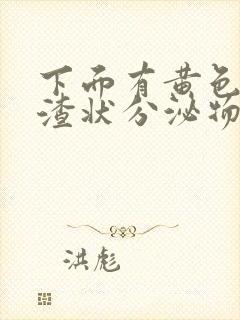 下而有黄色
渣状分泌物
洪彪